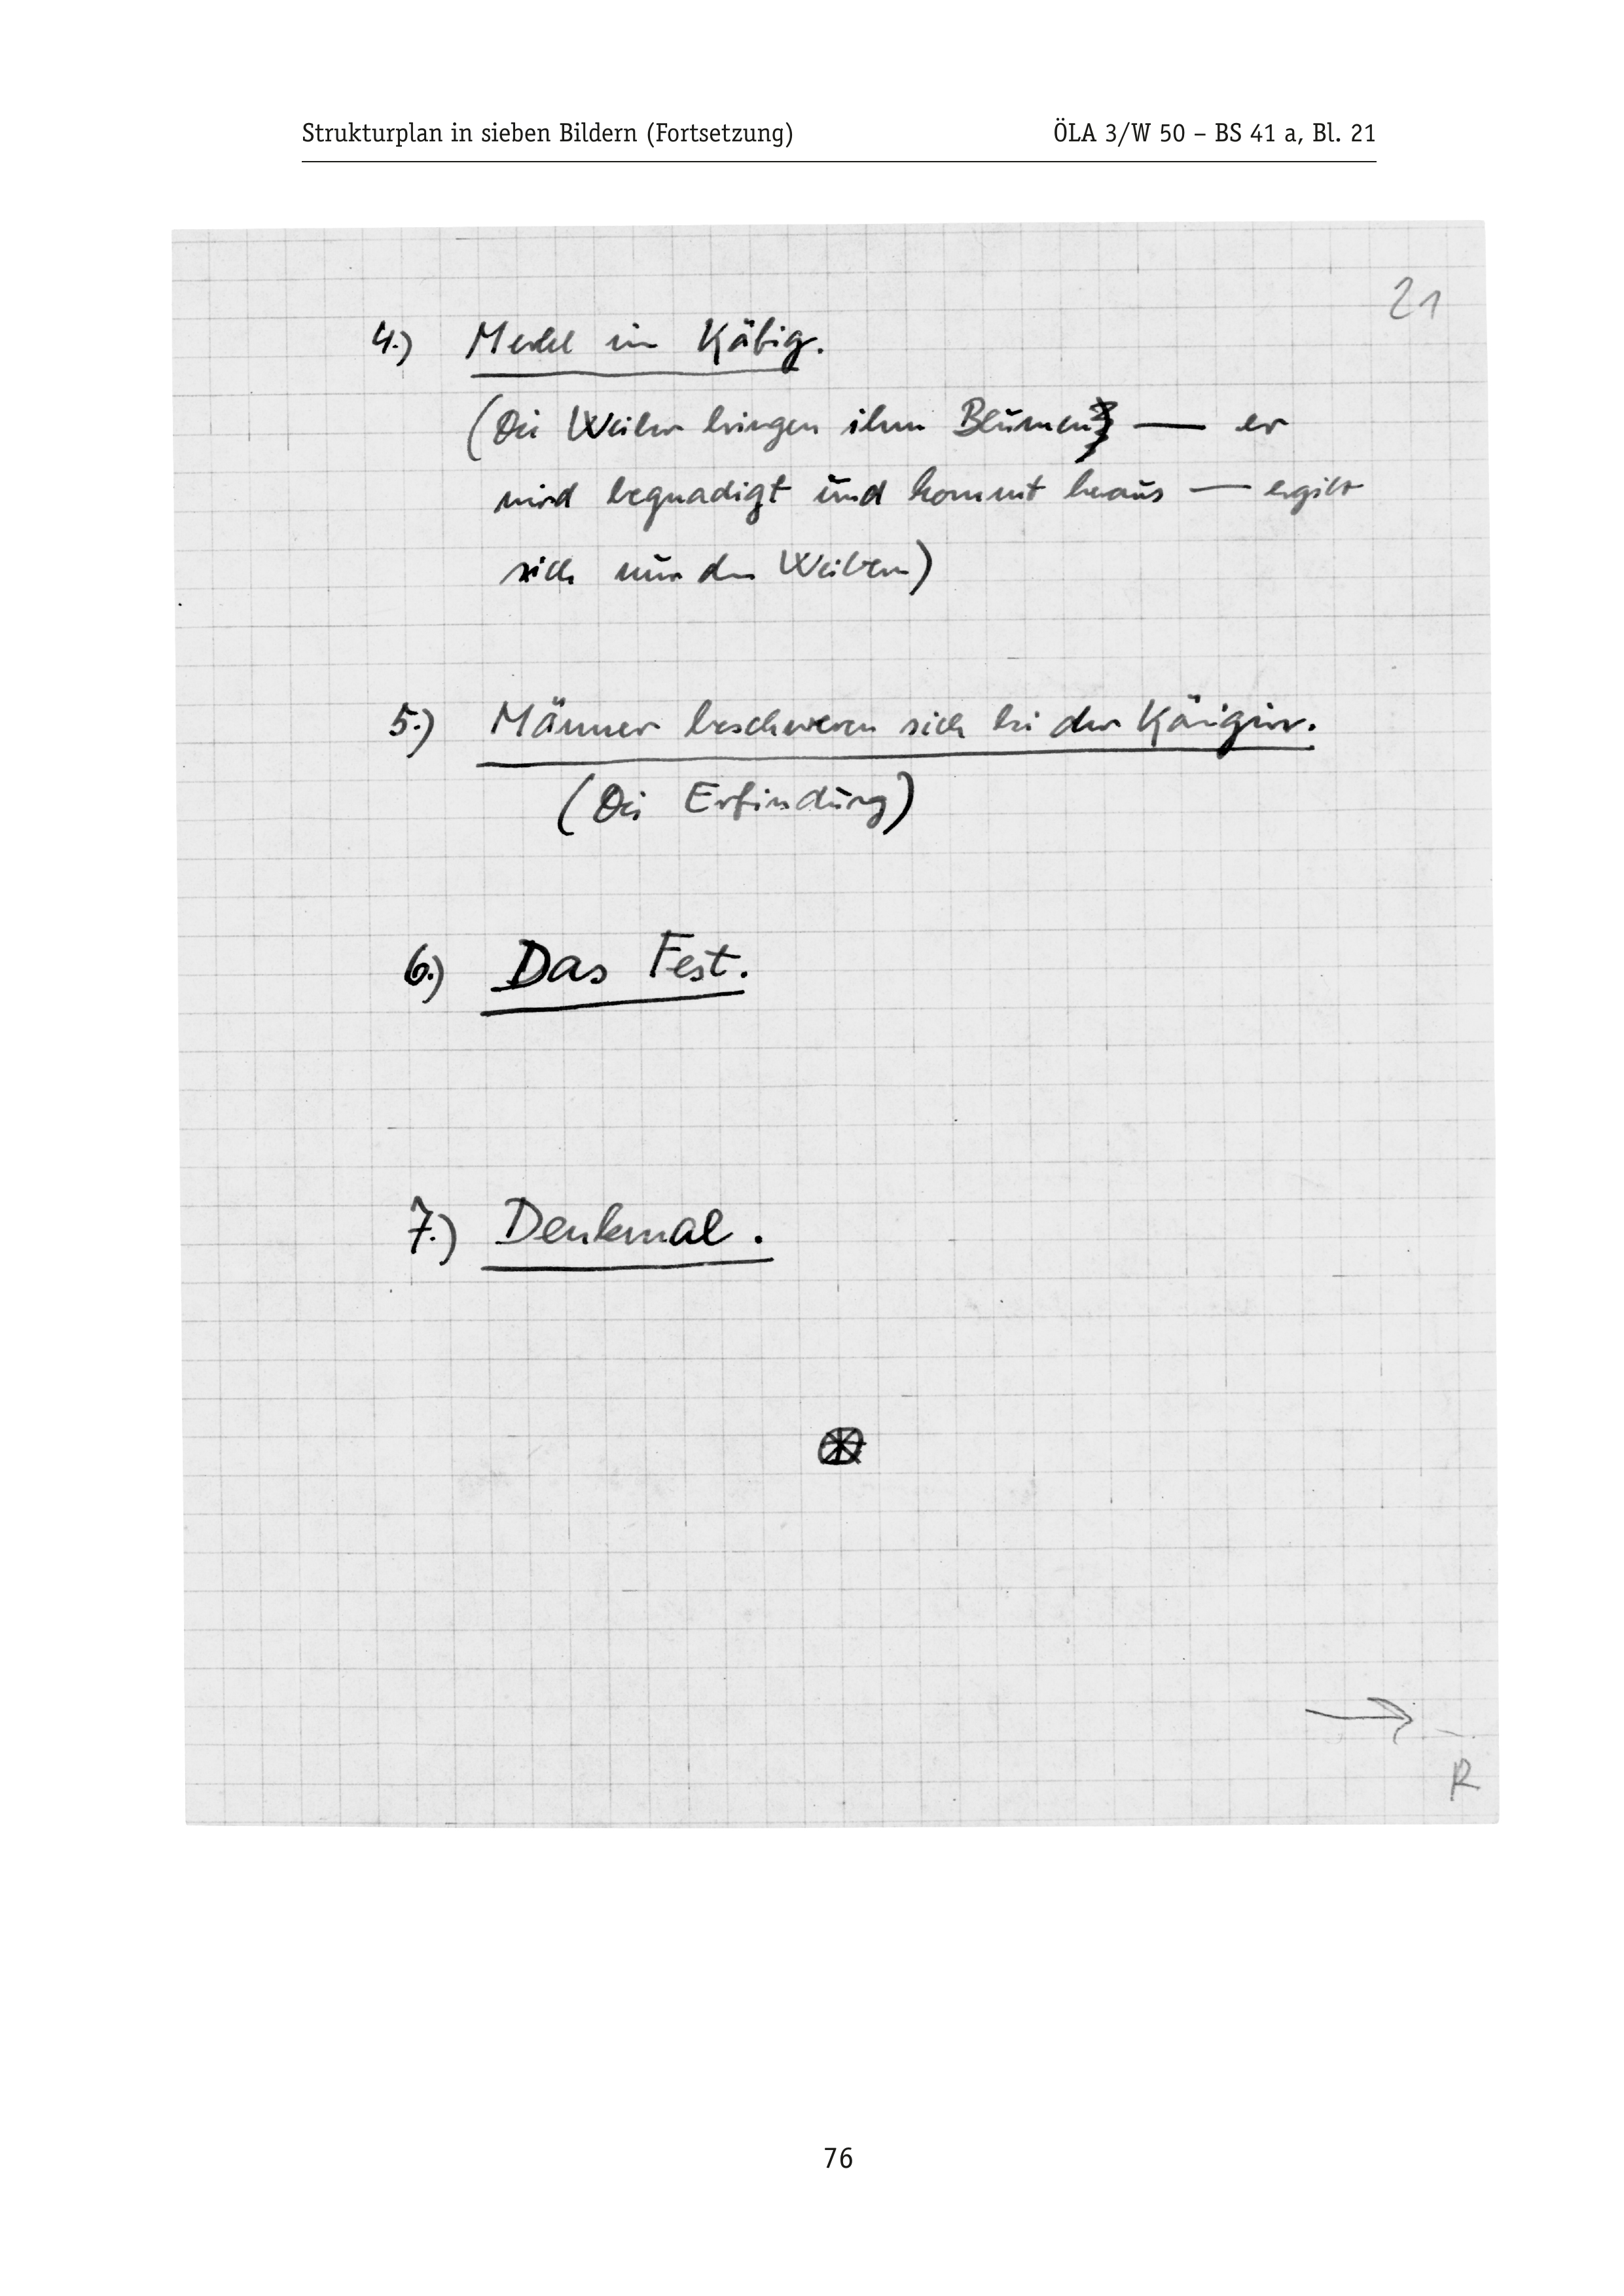 Strukturplan in sieben Bildern (Fortsetzung) ÖLA 3/W 50 – BS 41 a, Bl. 21
21
4.) im Käfig.
(Die Weiber bringen ihm Blumen — er
wird begnadigt und kommt heraus — ergibt
sich nur den Weibern)
5.) Männer beschweren sich bei der Königin.
(Die Erfindung)
6.) Das Fest.
7.) Denkmal.
→
R
76